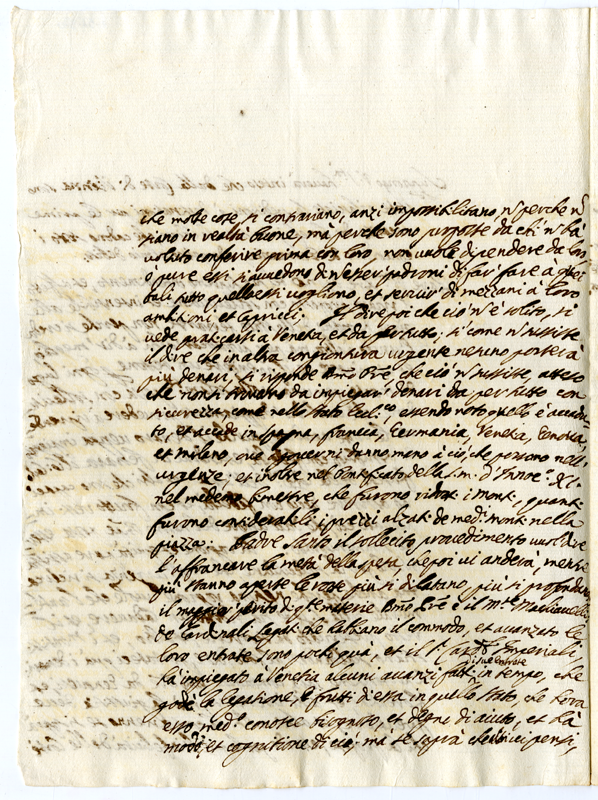 che molte cose si contrariano, anzi impossibilitano, n perche n
siano in realtà buone, mà perche sono proposte da chi n hà
voluto conferire prima con loro, non vuole dipendere da loro
ò pure essi si avvedono di n esser padroni di far' fare à
tutto quello essi vogliono, et servir' di mezzani à loro
ambitioni, et capricci. Il dire poi che ciò n' è solito, si
vede à Venetia, et da per tutto; si come n sussiste
il dire che in altra congiontura urgente nessuno porterà
più denari, si risponde Bmo Pre, che ciò n sussiste, atteso
che non trovano da impiegar' denari da per tutto con
sicurezza, come nello stato Eccl.co essendo noto quello è accadu-
to, et accade in spagna, francia, Germania, Venetia, Genova,
et Milano, ove i governi danno meno à ciò, che possono nell'
urgenze, et inoltre nel Pontificato della s.m. d'Innoc.o XI.
nel medemo che furono i monti, quanti
furono considerabili i prezzi alzati de med.i monti nella
piazza. Padre Santo il sollecito procedimento vuol dire
l'affrancare la metà della spesa, che poi vi anderà, mentre
più stanno aperte le rotte più si dilatano, più si profondano
il maggior perito di q.te materie Bmo Pre è il
de Cardinali Legati che hanno il commodo, et avanzato le
loro entrate sono pochi quà, et il S.r Card. Imperiali
hà impiegato à Venetia alcuni avanzi fatti di sue entrate in tempo, che
godè la legatione, e frutti d'essa in quello stato, che hora
esso med.o conosce bisognoso, et degno di aiuto, et hà
modo, et cognitione di ciò; ma se soprà ci pensi,